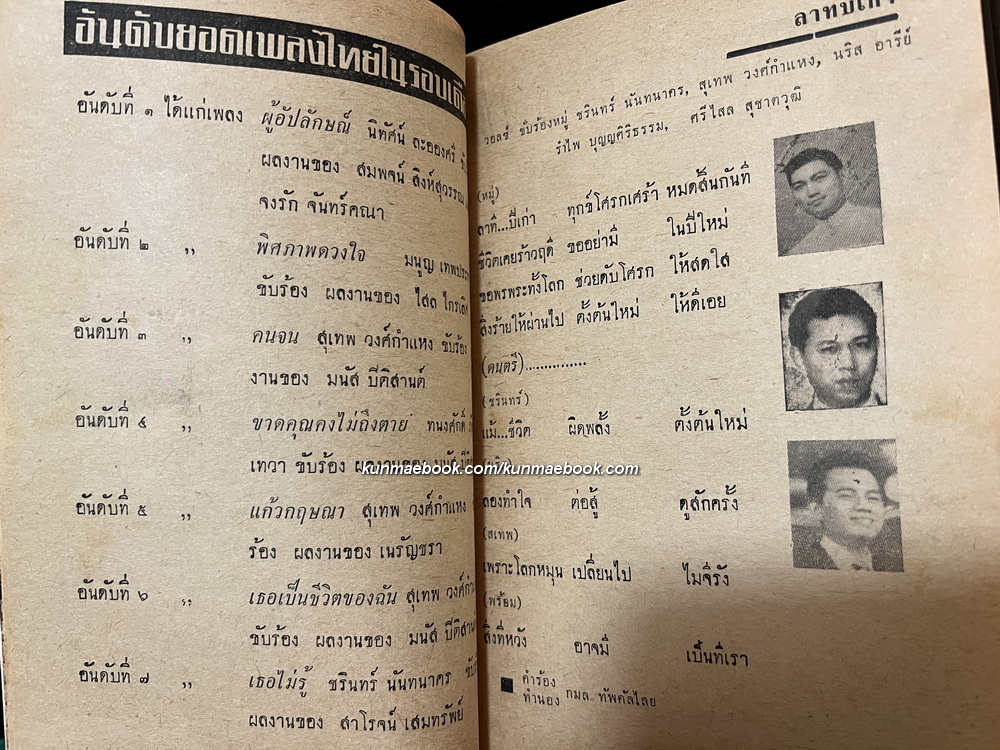 อันดับยอดเพลงไทยในรอบเดือ
อันดับที่ ๑ ได้แก่เพลง ผู้อัปลักษณ์ นิทัศน์ ละอองศรี
ผลงานของ สมพจน์ สิงห์สุวรรณ
จงรัก จันทร์คณา
อันดับที่ ๒ ,, พิศภาพดวงใจ มนูญ เทพประ
ขับร้อง ผลงานของ ไสล ไกรเลิศ
อันดับที่ ๓ ,, คนจน สุเทพ วงศ์กำแหง ขับร้อง
งานของ มนัส ปิติสานต์
อันดับที่ ๔ ,, ขาดคุณคงไม่ถึงตาย ทนงศักดิ์
เทวา ขับร้อง ผลงานของ มนัส ปิติ
อันดับที่ ๕ ,, แก้วกฤษณา สุเทพ วงศ์กำแหง
ร้อง ผลงานของ เนรัญชรา
อันดับที่ ๖ ,, เธอเป็นชีวิตของฉัน สุเทพ วงศ์กำ
ขับร้อง ผลงานของ มนัส ปิติสาน
อันดับที่ ๗ ,, เธอไม่รู้ ชรินทร์ นันทนาคร ขับ
ผลงานของ สาโรจน์ เสมทรัพย์
ลาทีปีเก่า
วอลซ์ ขับร้องหมู่ ชรินทร์ นันทนาคร, สุเทพ วงศ์กำแหง, นริส อารีย์
รำไพ บุญญศิริธรรม, ศรีไสล สุชาตวุฒิ
(หมู่)
ลาที...ปีเก่า ทุกข์โศรกเศร้า หมดสิ้นกันที
ชีวิตเคยร้าวฤดี ขออย่ามี ในปีใหม่
ขอพรพระทั้งโลก ช่วยดับโศรก ให้สดใส
สิ่งร้ายให้ผ่านไป ตั้งต้นใหม่ ให้ดีเอย
(ดนตรี)...............
(ชรินทร์)
แม้...ชีวิต ผิดพลั้ง ตั้งต้นใหม่
ลองทำใจ ต่อสู้ ดูสักครั้ง
(สุเทพ)
เพราะโลกหมุน เปลี่ยนไป ไม่จีรัง
(พร้อม)
สิ่งที่หวัง อาจมี เป็นที่เรา
คำร้อง
ทำนอง กมล ทัพคัลไลย
kunmaebook.com/kunmaebook.com